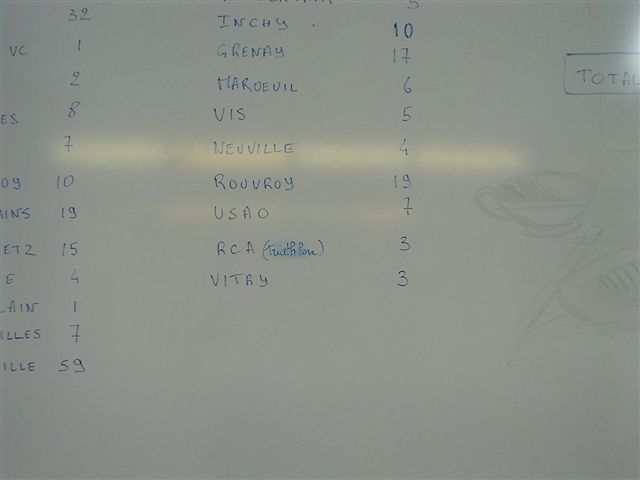 32
VC 1
2
ES 8
7
OY 10
AINS 19
ETZ 15
E 4
LAIN 1
ILLES 7
ILLE 59
INCHY . 10
GRENAY 17
MAROEUIL 6
VIS 5
NEUVILLE 4
ROUVROY 19
USAO 7
RCA (triathlon) 3
VITRY 3
TOTAL